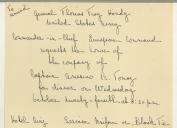 To remind
General Thomas Troy Handy
United States Army
Commander-in-Chief European Command
requests the honor of
the company of
Captain
for dinner on Wednesday
October twenty-fourth at 8:30 p.m.
Service Uniform or Black Tie